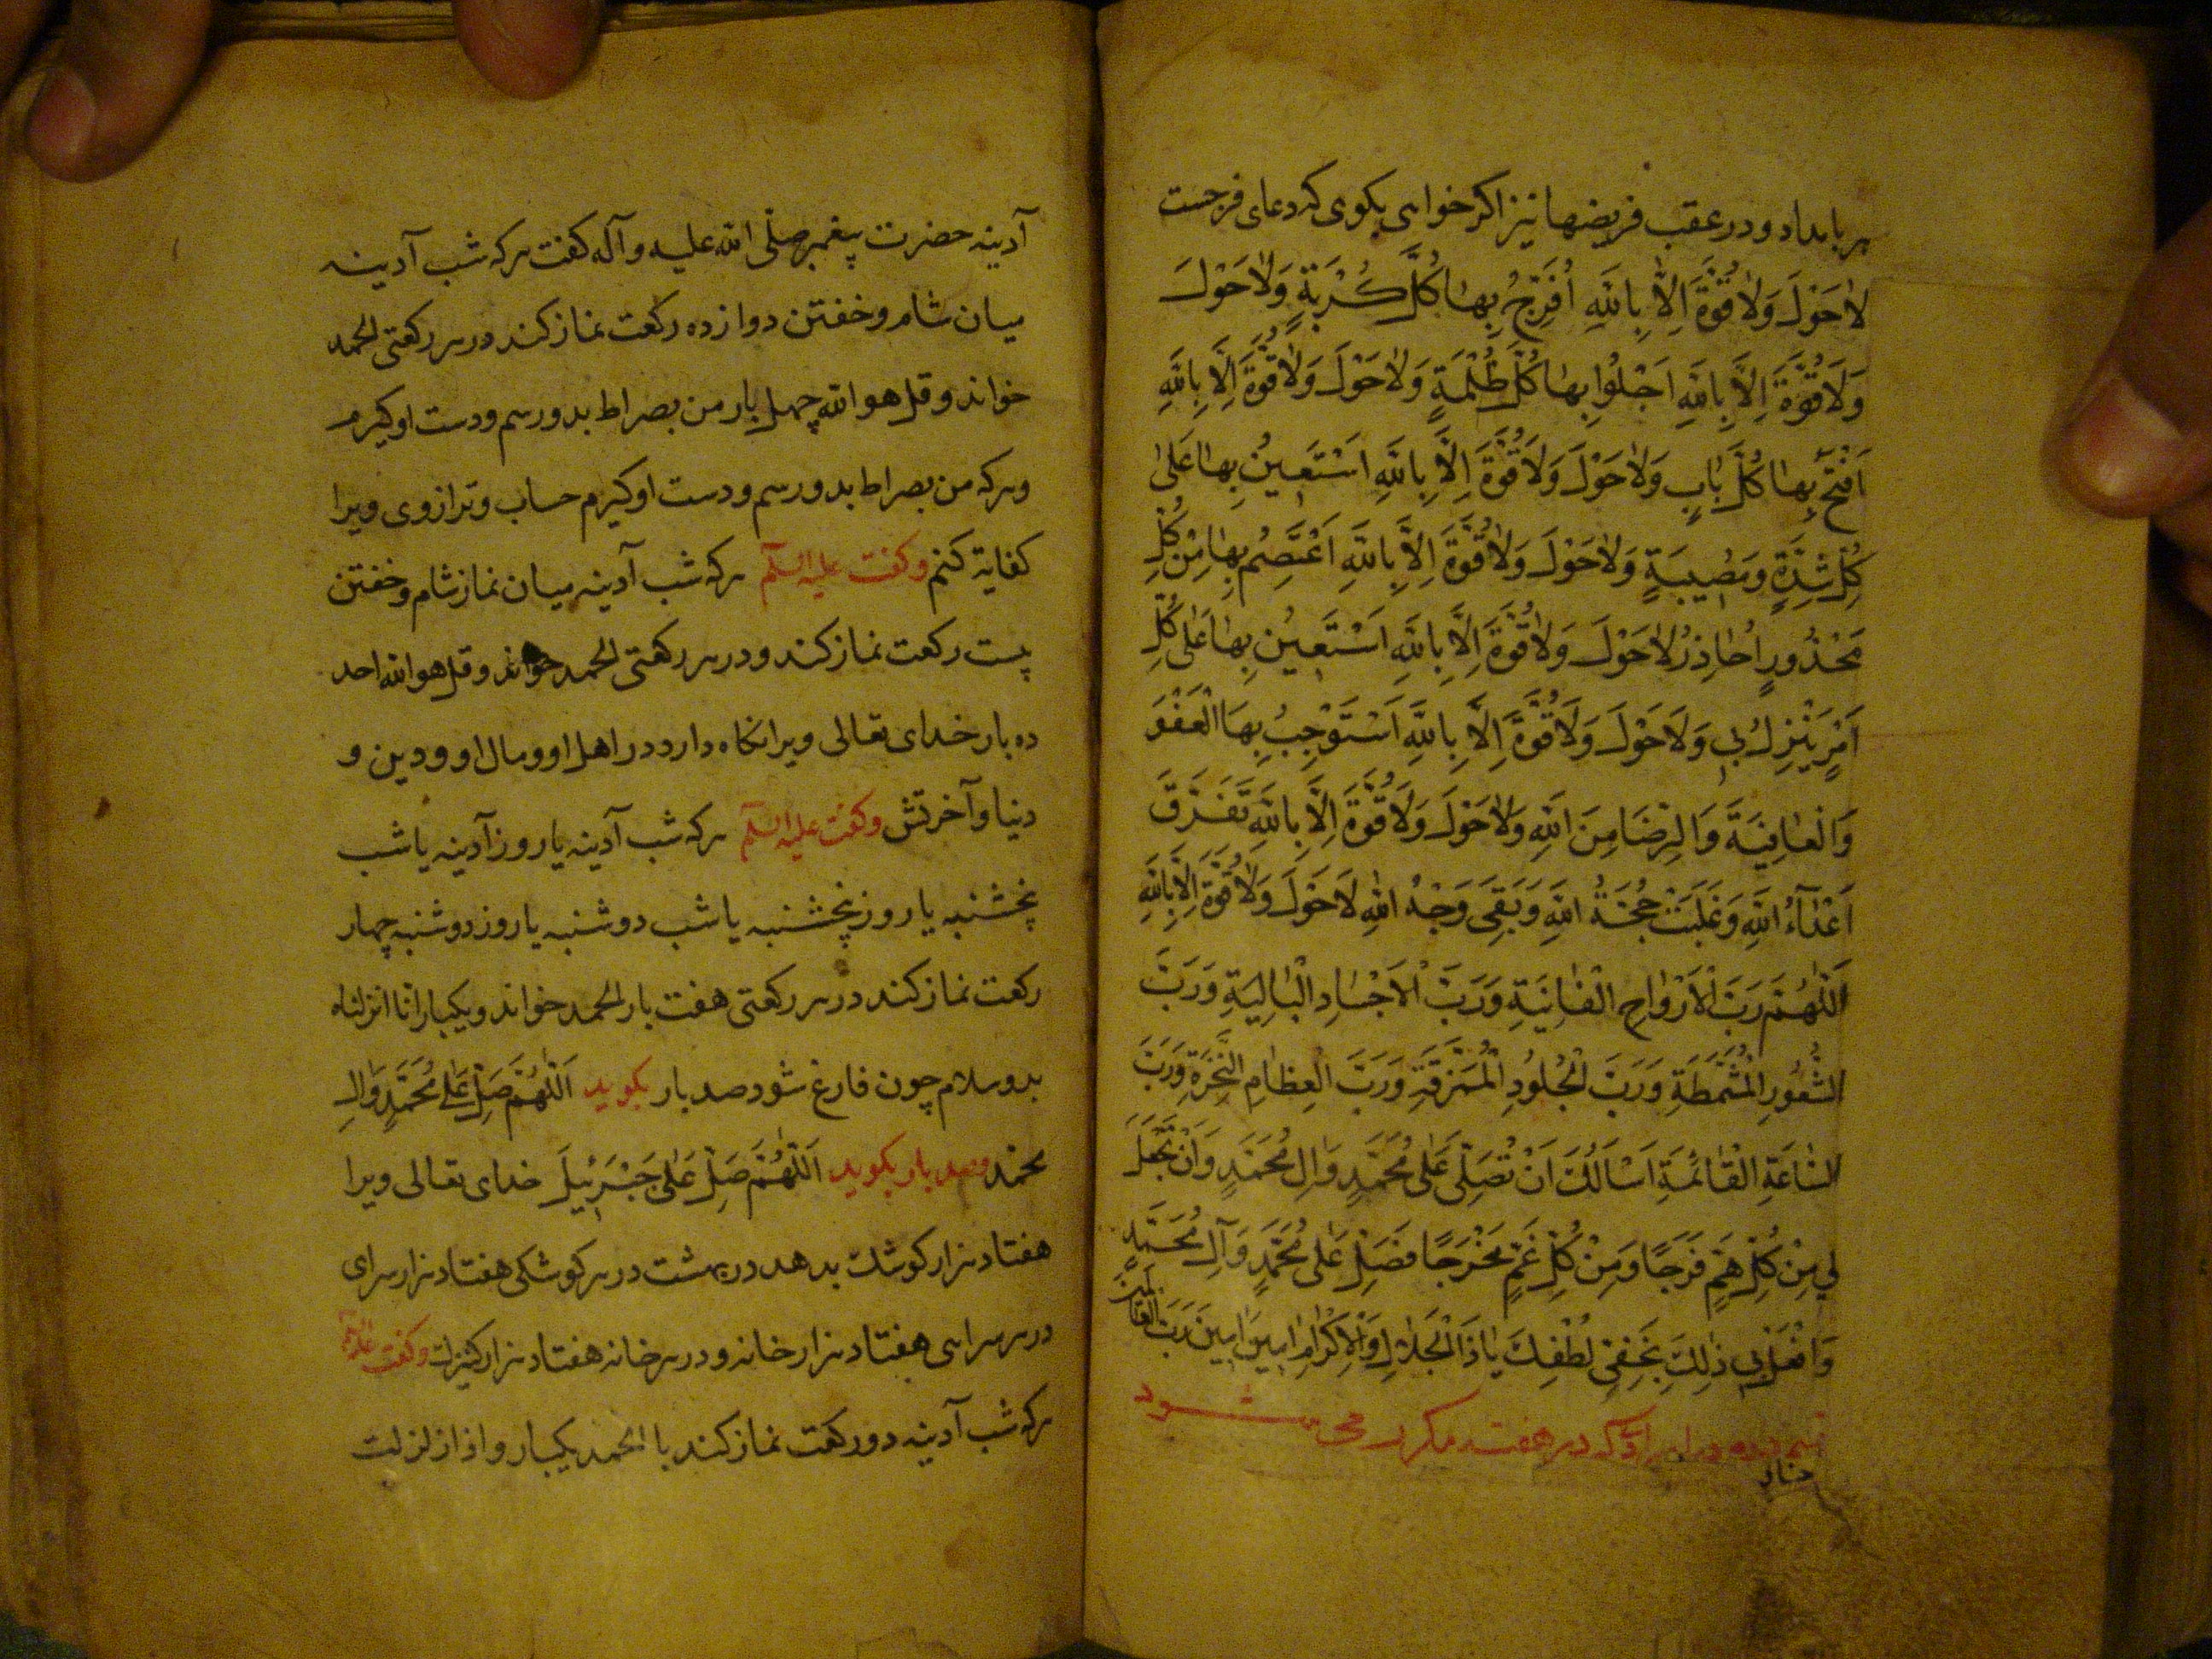 هر بامداد و در عقب فریضها نیز اکر خواهی بکوی که دعای فرجست
لاٰ حَوْلَ وَلاٰ قُوَّةَ اِلاّٰ بِاللّٰهِ اُفَرِّجُ بِهٰا كُلَّ كُرْبَةٍ وَلاٰ حَوْلَ
وَلاٰ قُوَّةَ اِلاّٰ بِاللّٰهِ اَجْلُوا بِهٰا كُلَّ ظُلْمَةٍ وَلاٰ حَوْلَ وَلاٰ قُوَّةَ اِلاّٰ بِاللّٰهِ
اَفْتَحُ بِهٰا كُلَّ بٰابٍ وَلاٰ حَوْلَ وَلاٰ قُوَّةَ اِلاّٰ بِاللّٰهِ اَسْتَعِينُ بِهٰا عَلىٰ
كُلِّ شِدَّةٍ وَمُصِيبَةٍ وَلاٰ حَوْلَ وَلاٰ قُوَّةَ اِلاّٰ بِاللّٰهِ اَعْتَصِمُ بِهٰا مِنْ كُلِّ
مَحْذُورٍ اُحٰاذِرُ لاٰ حَوْلَ وَلاٰ قُوَّةَ اِلاّٰ بِاللّٰهِ اَسْتَعِينُ بِهٰا عَلىٰ كُلِّ
اَمْرٍ يَنْزِلُ بِي وَلاٰ حَوْلَ وَلاٰ قُوَّةَ اِلاّٰ بِاللّٰهِ اَسْتَوْجِبُ بِهَا الْعَفْوَ
وَالْعٰافِيَةَ وَالرِّضَا مِنَ اللّٰهِ وَلاٰ حَوْلَ وَلاٰ قُوَّةَ اِلاّٰ بِاللّٰهِ تَفَرَّقَ
اَعْدٰاءُ اللّٰهِ وَغَلَبَتْ حُجَّةُ اللّٰهِ وَبَقِىَ وَجْهُ اللّٰهِ لاٰ حَوْلَ وَلاٰ قُوَّةَ اِلاّٰ بِاللّٰهِ
اَللّٰهُمَّ رَبَّ الْاَرْوٰاحِ الْفٰانِيَةِ وَرَبَّ الْاَجْسٰادِ الْبٰالِيَةِ وَرَبَّ
الشُّعُورِ الْمُتَمَعِّطَةِ وَرَبَّ الْجُلُودِ الْمُمَزَّقَةِ وَرَبَّ الْعِظٰامِ النَّخِرَةِ وَرَبَّ
السّٰاعَةِ الْقٰائِمَةِ اَسْاَلُكَ اَنْ تُصَلِّيَ عَلىٰ مُحَمَّدٍ وَاٰلِ مُحَمَّدٍ وَاَنْ تَجْعَلَ
لِي مِنْ كُلِّ هَمٍّ فَرَجًا وَمِنْ كُلِّ غَمٍّ مَخْرَجًا فَصَلِّ عَلىٰ مُحَمَّدٍ وَآلِ مُحَمَّدٍ
وَافْعَلْ بِي ذٰلِكَ بِخَفِيِّ لُطْفِكَ يٰا ذَا الْجَلاٰلِ وَالْاِكْرٰامِ اٰمِينَ اٰمِينَ رَبَّ الْعٰالَمِينَ
که در هفته مکرر می شود
آدینه حضرت پیغمبر صلّی الله علیه و آله کفت هرکه شب آدینه
میان شام و خفتن دوازده رکعت نماز کند در هر رکعتی الحمد
خواند و قل هو الله چهل بار من بصراط بدو رسم و دست او کیرم
و هرکه من بصراط بدو رسم و دست او کیرم حساب و ترازوی ویرا
کفایة کنم و کفت علیه السلم هرکه شب آدینه میان نماز شام و خفتن
بیست رکعت نماز کند و در هر رکعتی الحمد خواند و قل هو الله احد
ده بار خدای تعالی ویرا نکاه دارد در اهل او و مال او و دین و
دنیا و آخرتش و کفت علیه السلم هرکه شب آدینه یا روز آدینه یا شب
پنجشنبه یا روز پنجشنبه یا شب دوشنبه یا روز دوشنبه چهار
رکعت نماز کند در هر رکعتی هفت بار الحمد خواند و یکبار انا انزلناه
بدو سلام چون فارغ شود صد بار بکوید اَللّٰهُمَّ صَلِّ عَلىٰ مُحَمَّدٍ وَاٰلِ
مُحَمَّد و صد بار بکوید اَللّٰهُمَّ صَلِّ عَلىٰ جَبْرَئِيلَ خدای تعالی ویرا
هفتاد هزار کوشک بدهد در بهشت در هر کوشکی هفتاد هزار سرای
در هر سرایی هفتاد هزار خانه و در هر خانه هفتاد هزار کنیزک و کفت
هرکه شب آدینه دو رکعت نماز کند با الحمد یکبار و اذا زلزلت